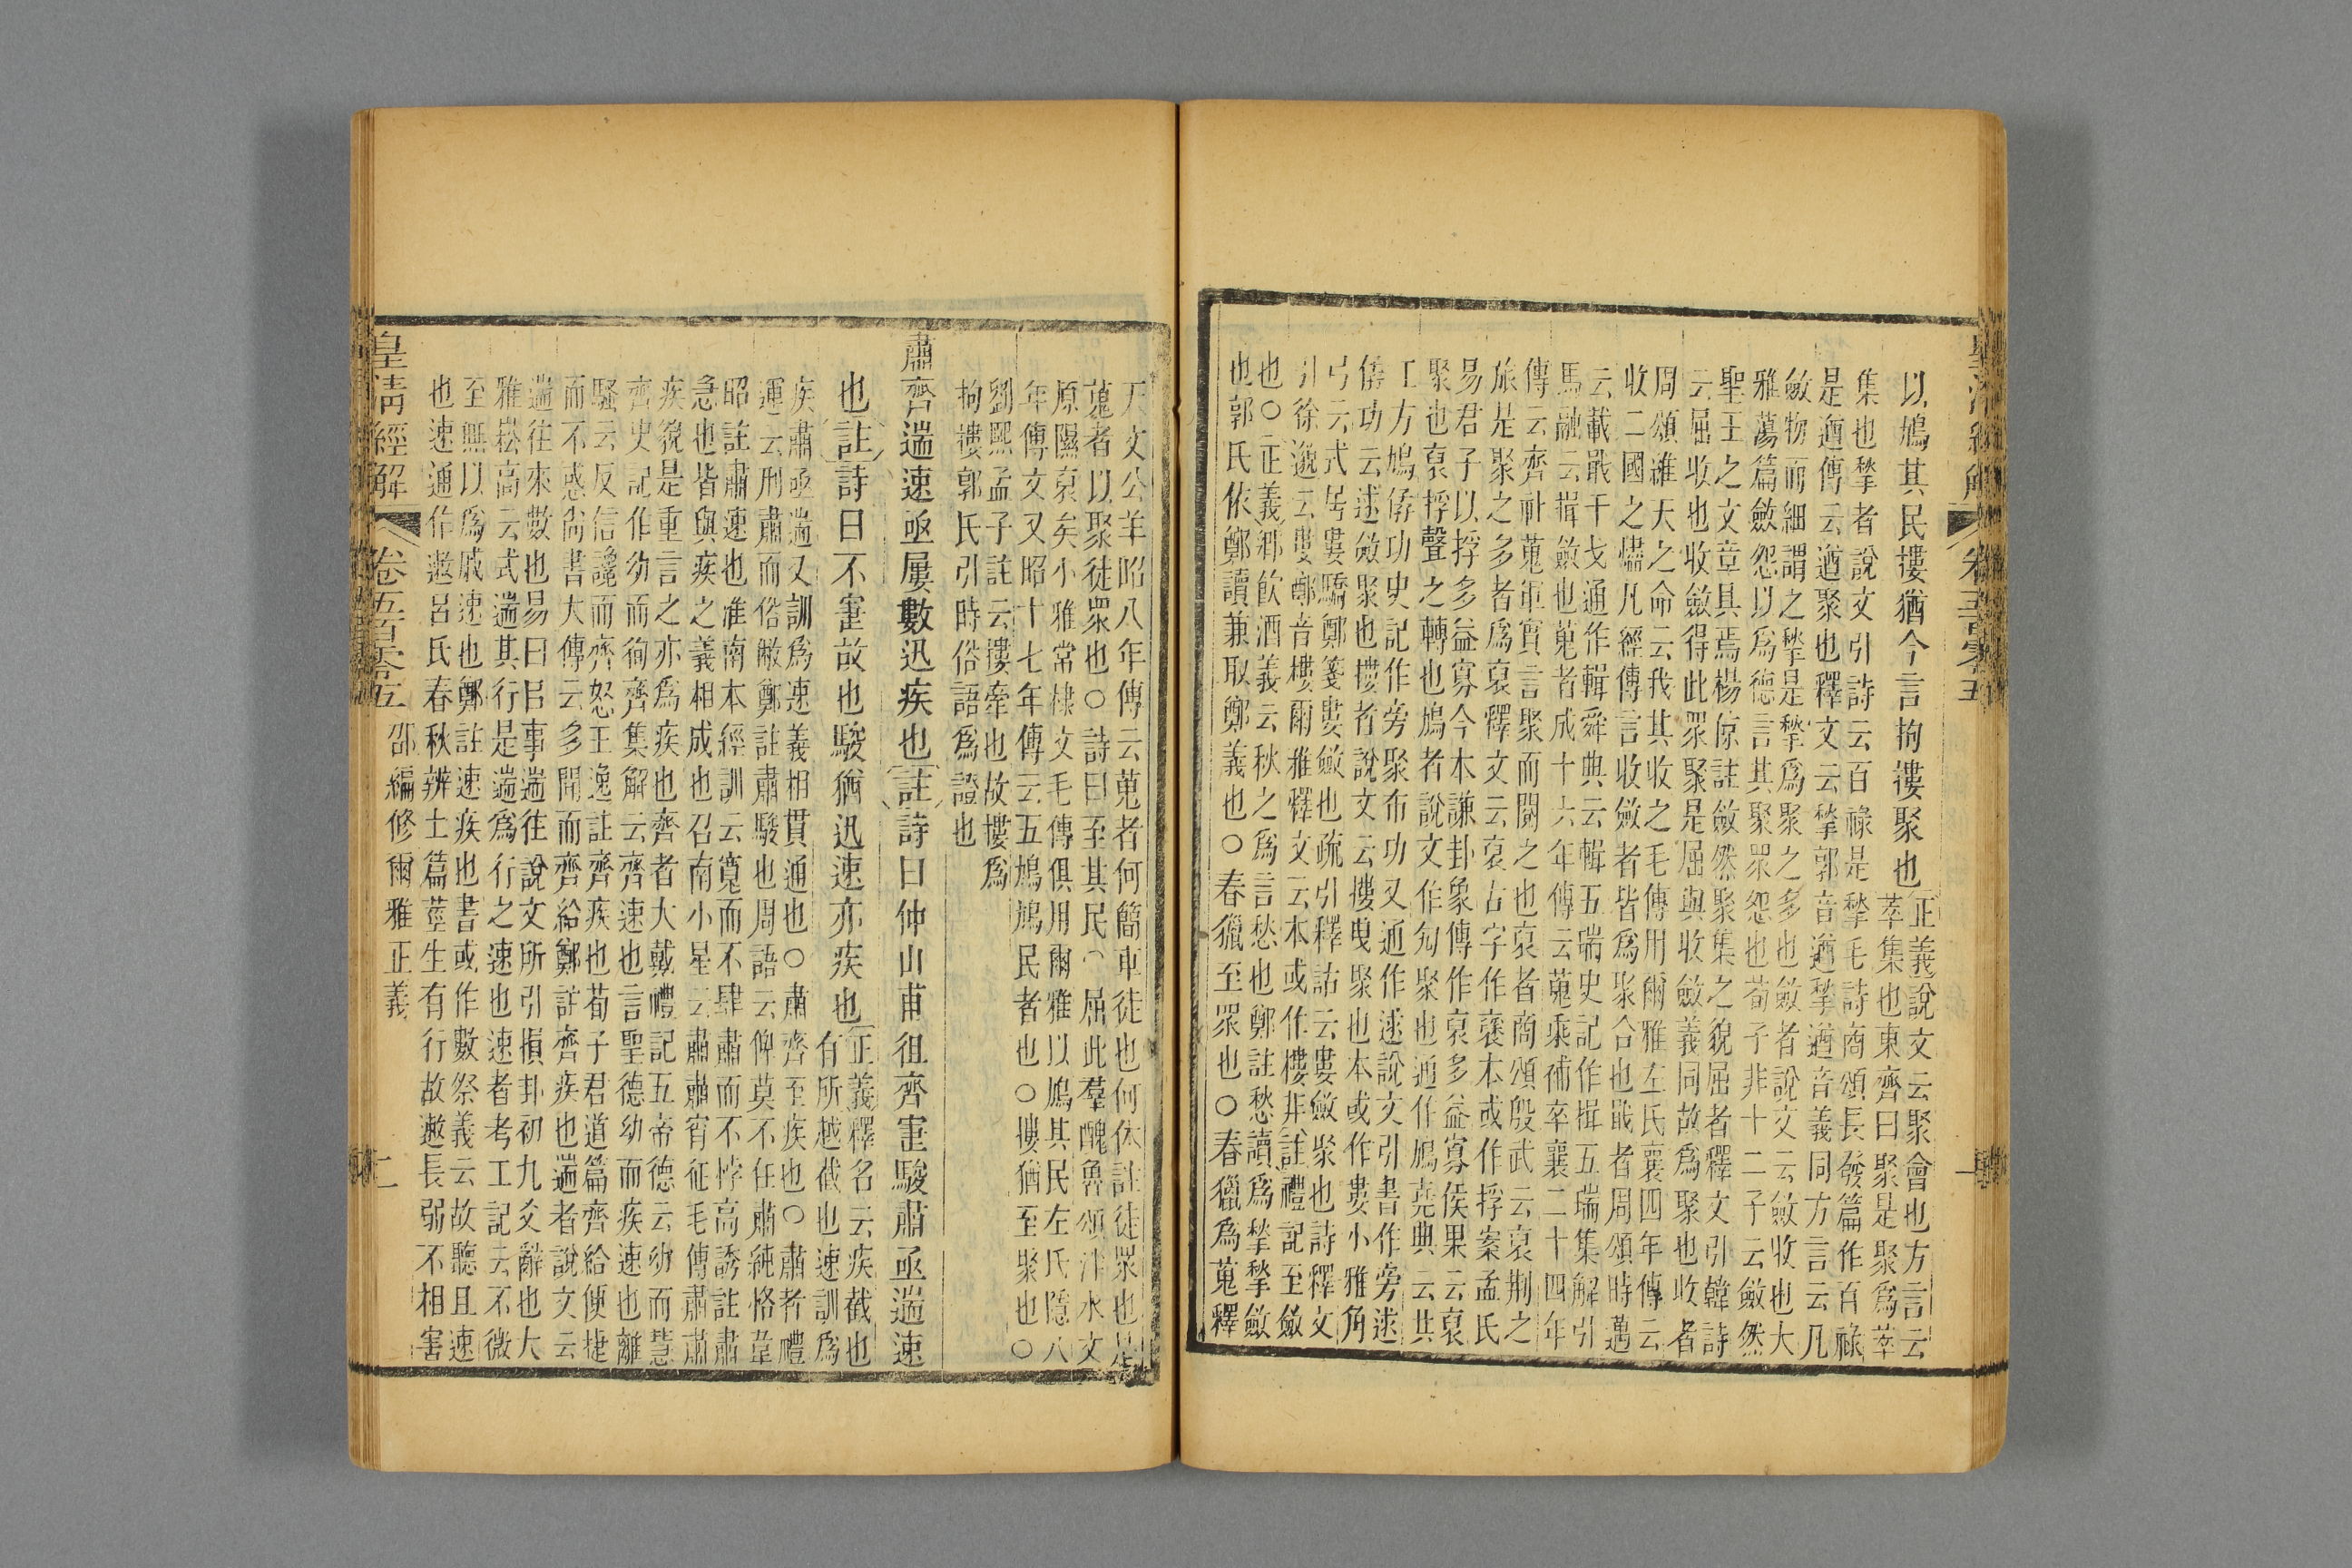 以鳩其民摟猶今言拘摟聚也
正義說文云聚會也方言云
萃集也東齊曰聚是聚爲萃
集也揫者說文引詩云百祿是揫毛詩商頌長發篇作百祿
是遒傳云遒聚也釋文云揫郭音遒揫遒音義同方言云凡
斂物而細謂之揫是揫爲聚之多也斂者說文云斂收也大
雅蕩篇斂怨以爲德言其聚眾怨也荀子非十二子云斂然
聖王之文章具焉楊倞註斂然聚集之貌屈者釋文引韓詩
云屈收也收斂得此眾聚是屈與收斂義同故爲聚也收者
周頌維天之命云我其收之毛傳用爾雅左氏襄四年傳云
收二國之燼凡經傳言收斂者皆爲聚合也戢者周頌時邁
云載戢干戈通作輯舜典云輯五瑞史記作揖五瑞集解引
馬融云揖斂也蒐者成十六年傳云蒐乘補卒襄二十四年
傳云齊社蒐軍實言聚而閱之也裒者商頌殷武云裒荆之
旅是聚之多者爲裒釋文云裒古字作襃本或作捊案孟氏
易君子以捊多益寡今本謙卦象傳作裒多益寡侯果云裒
聚也裒捊聲之轉也鳩者說文作勼聚也通作鳩堯典云共
工方鳩僝功史記作旁聚布功又通作逑說文引書作旁逑
僝功云逑斂聚也摟者說文云摟曳聚也本或作婁小雅角
弓云式居婁驕鄭箋婁斂也疏引釋詁云婁斂聚也詩釋文
引徐邈云婁鄭音樓爾雅釋文云本或作樓非註禮記至斂
也○正義鄉飲酒義云秋之爲言愁也鄭註愁讀爲揫揫斂
也郭氏依鄭讀兼取鄭義也○春獵至眾也○春獵爲蒐釋
天文公羊昭八年傳云蒐者何簡車徒也何休註徒眾也是
蒐者以聚徒眾也○詩曰至其民○屈此羣醜魯頌泮水文
原隰裒矣小雅常棣文毛傳俱用爾雅以鳩其民左氏隱八
年傳文又昭十七年傳云五鳩鳩民者也○摟猶至聚也○
劉熙孟子註云摟牽也故摟爲
拘摟郭氏引時俗語爲證也
肅齊遄速亟屢數迅疾也註詩曰仲山甫徂齊寁駿肅亟遄速
也註詩曰不寁故也駿猶迅速亦疾也
正義釋名云疾截也
有所越截也速訓爲
疾肅亟遄又訓爲速義相貫通也○肅齊至疾也○肅者禮
運云刑肅而俗敝鄭註肅駿也周語云俾莫不任肅純恪韋
昭註肅速也淮南本經訓云寬而不肆肅而不悖高誘註肅
急也皆與疾之義相成也召南小星云肅肅宵征毛傳肅肅
疾貌是重言之亦爲疾也齊者大戴禮記五帝德云幼而慧
齊史記作幼而徇齊集解云齊速也言聖德幼而疾速也離
騷云反信讒而齊怒王逸註齊疾也荀子君道篇齊給便捷
而不惑尚書大傳云多聞而齊給鄭註齊疾也遄者說文云
遄往來數也易曰㠯事遄往說文所引損卦初九爻辭也大
雅崧高云式遄其行是遄爲行之速也速者考工記云不微
至無以爲戚速也鄭註速疾也書或作數祭義云故聽且速
也速通作遬呂氏春秋辨土篇莖生有行故遬長弱不相害
皇清經解
卷五百零五
邵編修爾雅正義
二